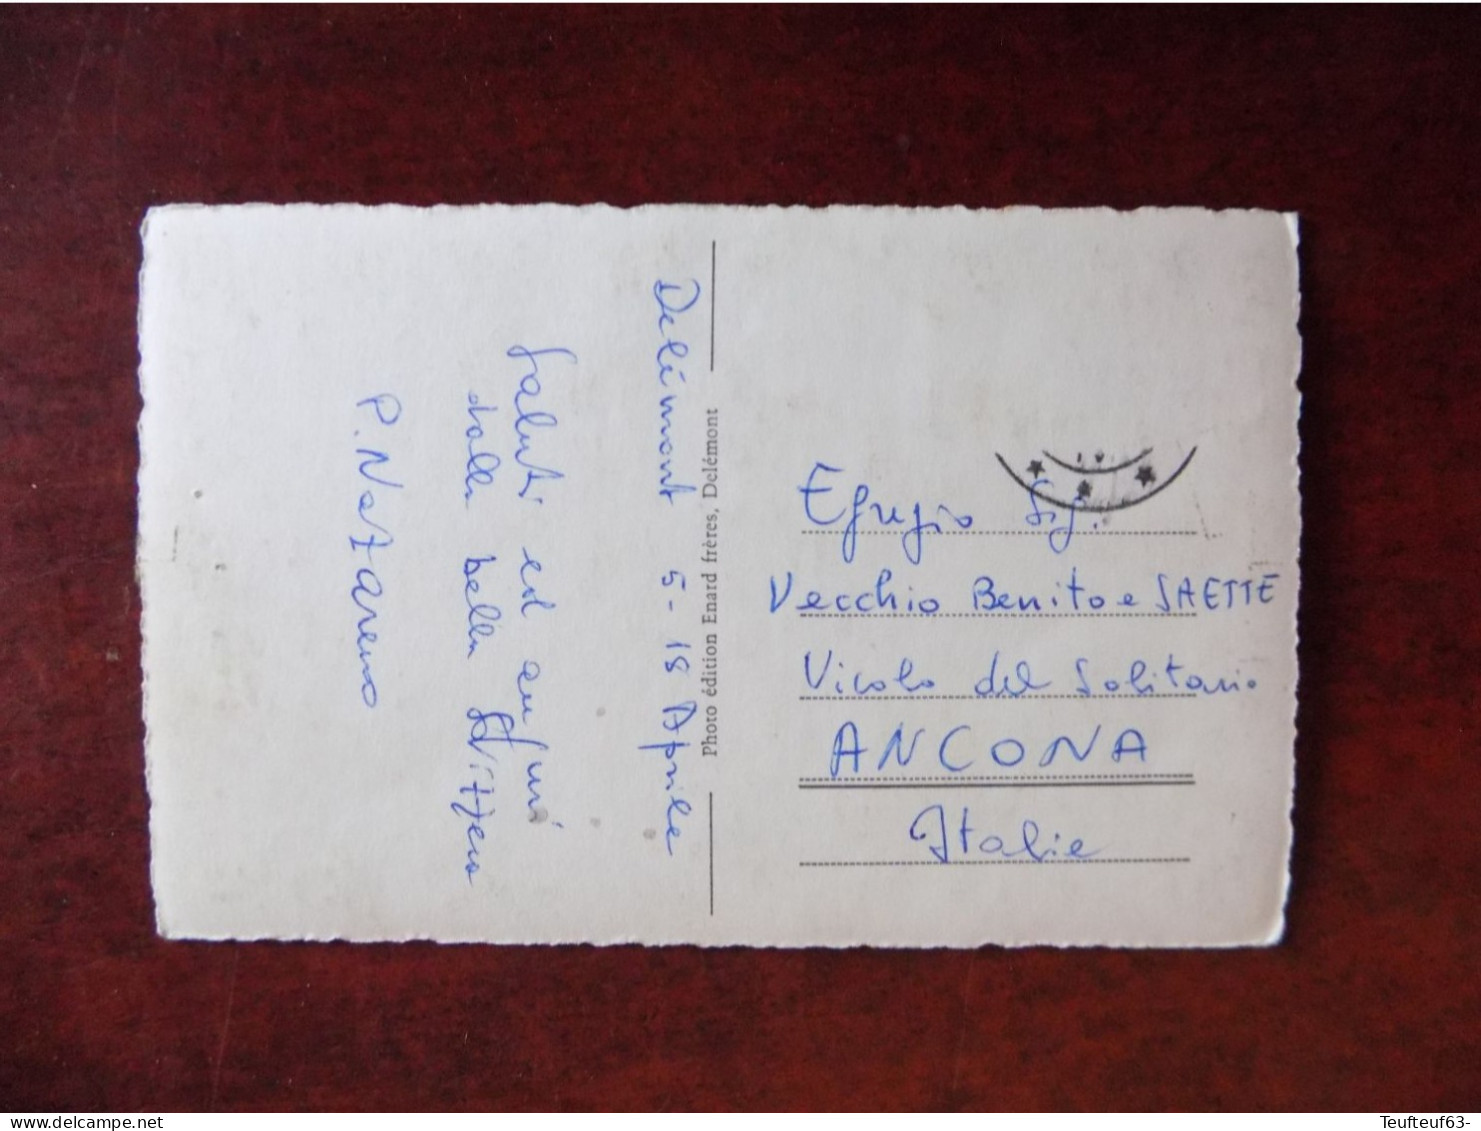 Delémont 5-18 Aprile
Saluti ed auguri
dalla bella Svizzera
P. Nazareno
Photo édition Enard frères, Delémont
Egregio Sig.
Vecchio Benito e SAETTE
Vicolo del Solitario
ANCONA
Italie
delcampe.net
Teufteuf63-